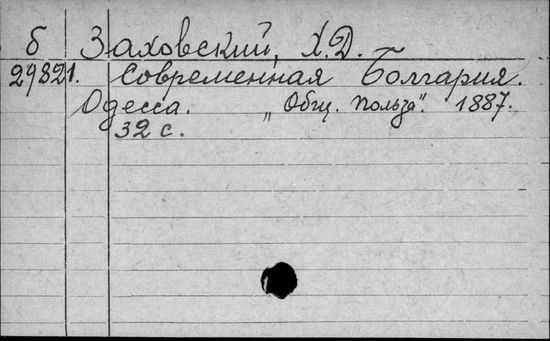 б Заховский, Х.Д.
29821. Современная Болгария.
Одесса. „Общ. Польза". 1887.
32 с.